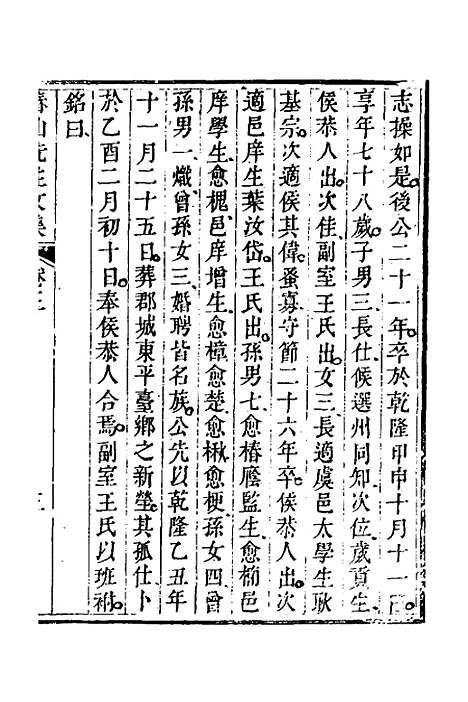 志操如是後公二十一年卒於乾隆甲申十月十一日
享年七十八歲子男三長仕候選州同知次位歲貢生
侯恭人出次佳副室王氏出女三長適虞邑太學生耿
基宗次適侯其偉蚤寡守節二十六年卒侯恭人出次
適邑庠生葉汝岱王氏出孫男七愈椿廕監生愈楠邑
庠學生愈槐邑庠增生愈樟愈楚愈楸愈梗孫女四曾
孫男一熾曾孫女三婚聘皆名族公先以乾隆乙丑年
十一月二十五日葬郡城東平臺鄉之新塋其孤仕卜
於乙酉二月初十日奉侯恭人合焉副室王氏以班祔
銘曰
山先生文集